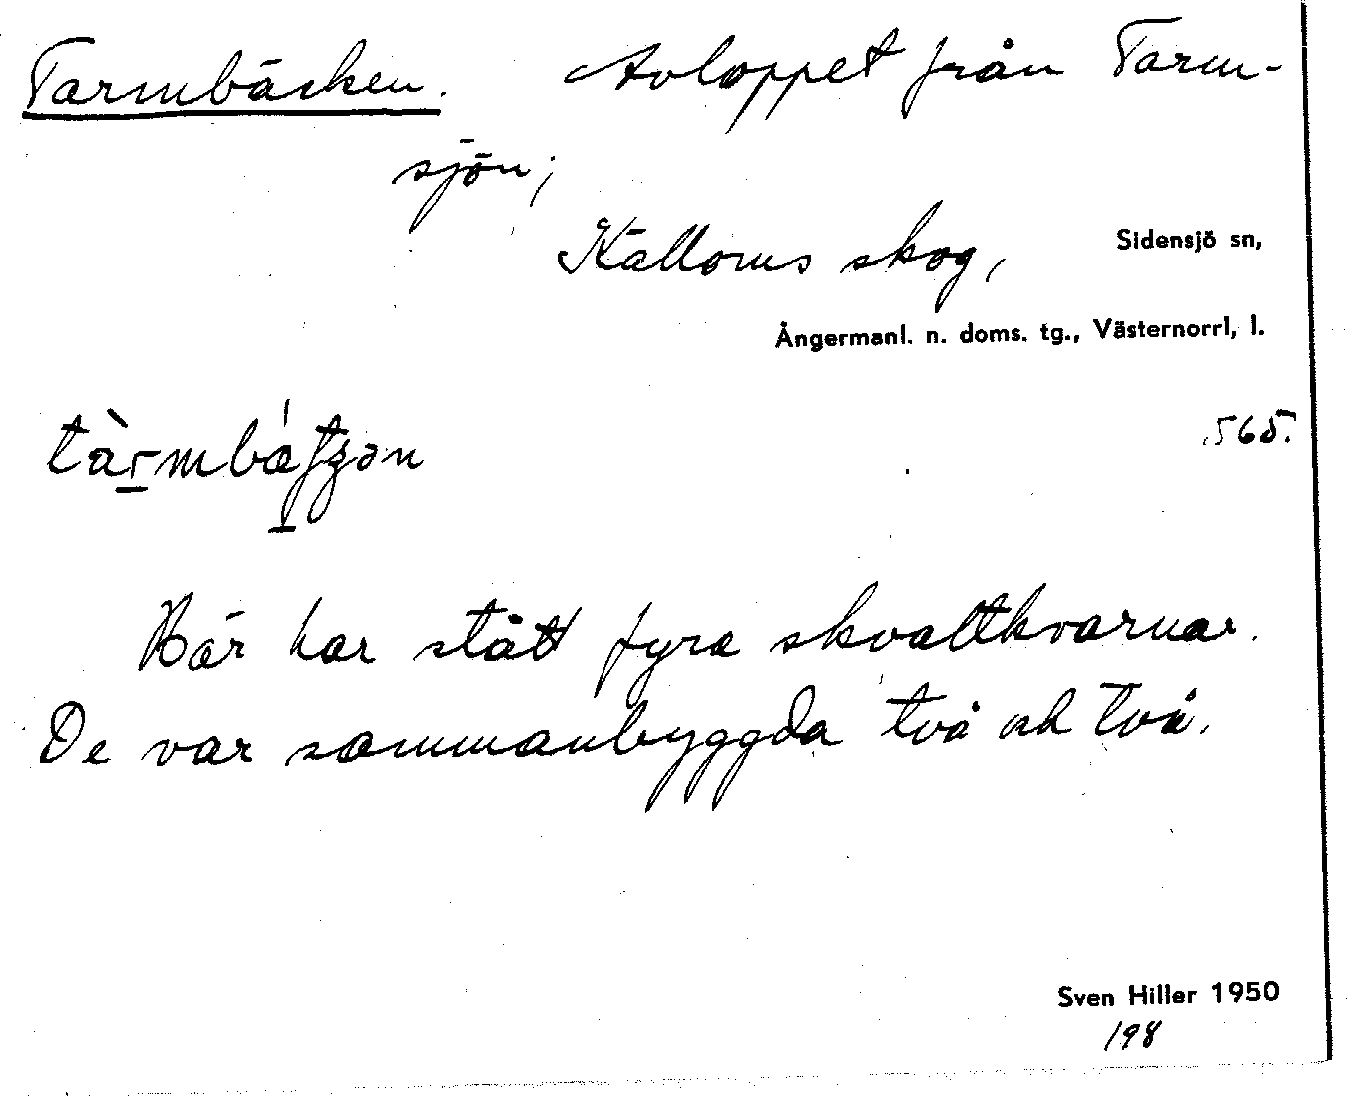 Tarmbäcken. Avloppet från Tarm-
sjön;
Källoms skog, Sidensjö sn,
Ångermanl. n. doms. tg., Västernorrl, l.
565.
Här har stått fyra skvaltkvarnar.
De var sammanbyggda två och två.
Sven Hiller 1950
198